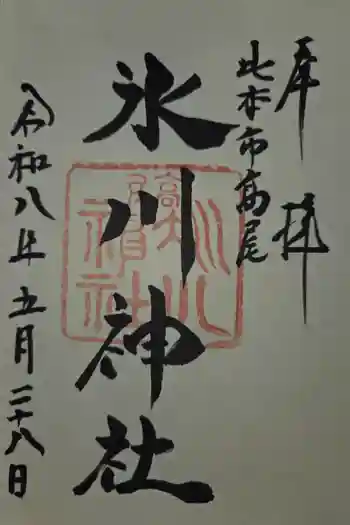 奉拝
北本市高尾
氷川神社
令和八年五月二十八日